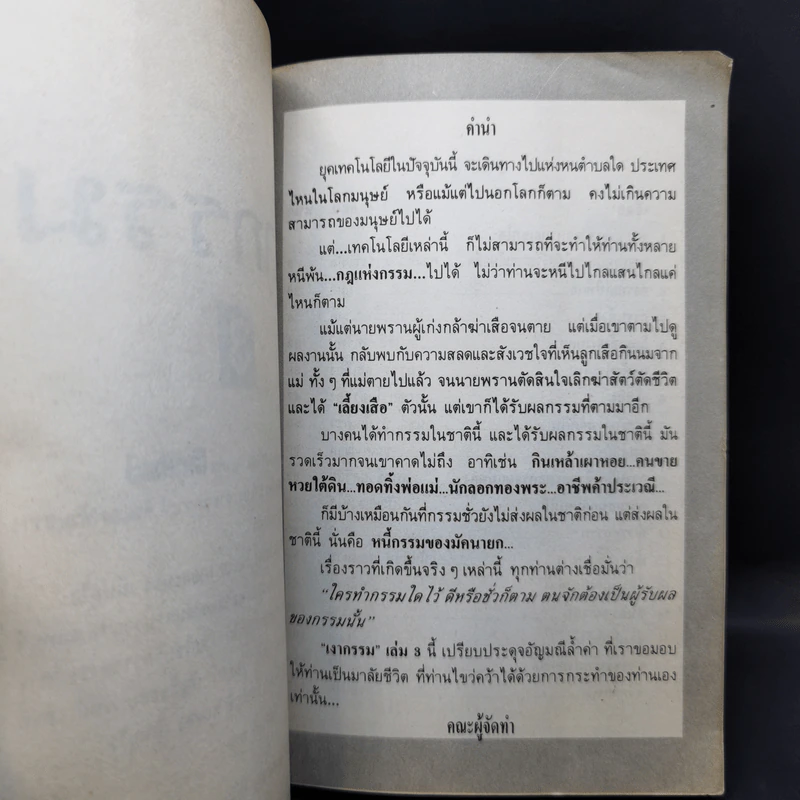 คำนำ
ยุคเทคโนโลยีในปัจจุบันนี้ จะเดินทางไปแห่งหนตำบลใด ประเทศ
ไหนในโลกมนุษย์ หรือแม้แต่ไปนอกโลกก็ตาม คงไม่เกินความ
สามารถของมนุษย์ไปได้
แต่...เทคโนโลยีเหล่านี้ ก็ไม่สามารถที่จะทำให้ท่านทั้งหลาย
หนีพ้น...กฎแห่งกรรม...ไปได้ ไม่ว่าท่านจะหนีไปไกลแสนไกลแค่
ไหนก็ตาม
แม้แต่นายพรานผู้เก่งกล้าฆ่าเสือจนตาย แต่เมื่อเขาตามไปดู
ผลงานนั้น กลับพบกับความสลดและสังเวชใจที่เห็นลูกเสือกินนมจาก
แม่ ทั้ง ๆ ที่แม่ตายไปแล้ว จนนายพรานตัดสินใจเลิกฆ่าสัตว์ตัดชีวิต
และได้ "เลี้ยงเสือ" ตัวนั้น แต่เขาก็ได้รับผลกรรมที่ตามมาอีก
บางคนได้ทำกรรมในชาตินี้ และได้รับผลกรรมในชาตินี้ มัน
รวดเร็วมากจนเขาคาดไม่ถึง อาทิเช่น กินเหล้าเผาหอย...คนขาย
หวยใต้ดิน...ทอดทิ้งพ่อแม่...นักลอกทองพระ...อาชีพค้าประเวณี...
ก็มีบ้างเหมือนกันที่กรรมชั่วยังไม่ส่งผลในชาติก่อน แต่ส่งผลใน
ชาตินี้ นั่นคือ หนี้กรรมของมัคนายก...
เรื่องราวที่เกิดขึ้นจริง ๆ เหล่านี้ ทุกท่านต่างเชื่อมั่นว่า
"ใครทำกรรมใดไว้ ดีหรือชั่วก็ตาม ตนจักต้องเป็นผู้รับผล
ของกรรมนั้น"
"เงากรรม" เล่ม 3 นี้ เปรียบประดุจอัญมณีล้ำค่า ที่เราขอมอบ
ให้ท่านเป็นมาลัยชีวิต ที่ท่านไขว่คว้าได้ด้วยการกระทำของท่านเอง
เท่านั้น...
คณะผู้จัดทำ